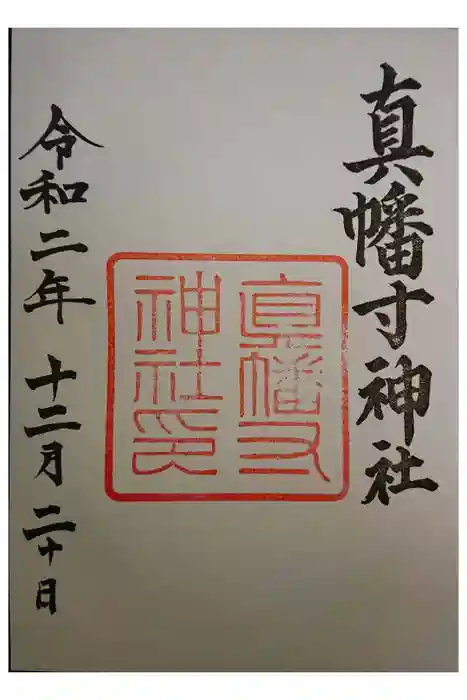 真幡寸神社
真幡寸
神社印
令和二年 十二月 二十日